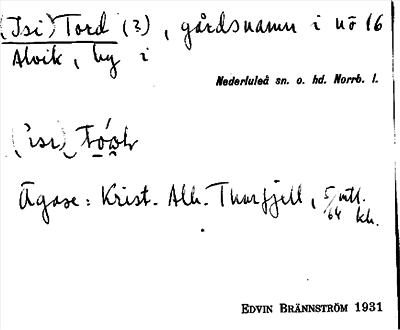 (Isi) Tord (3), gårdsnamn i nö 16
Alvik, by i
Nederluleå sn. o. hd. Norrb. l.
Ägare: Krist. Alb. Thurfjell, 5/64 mtl. kb.
EDVIN BRÄNNSTRÖM 1931